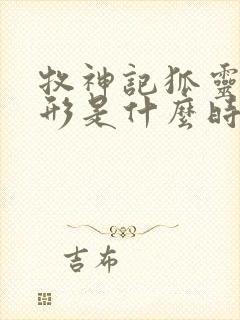 牧神記狐靈
形是什麼時
吉布